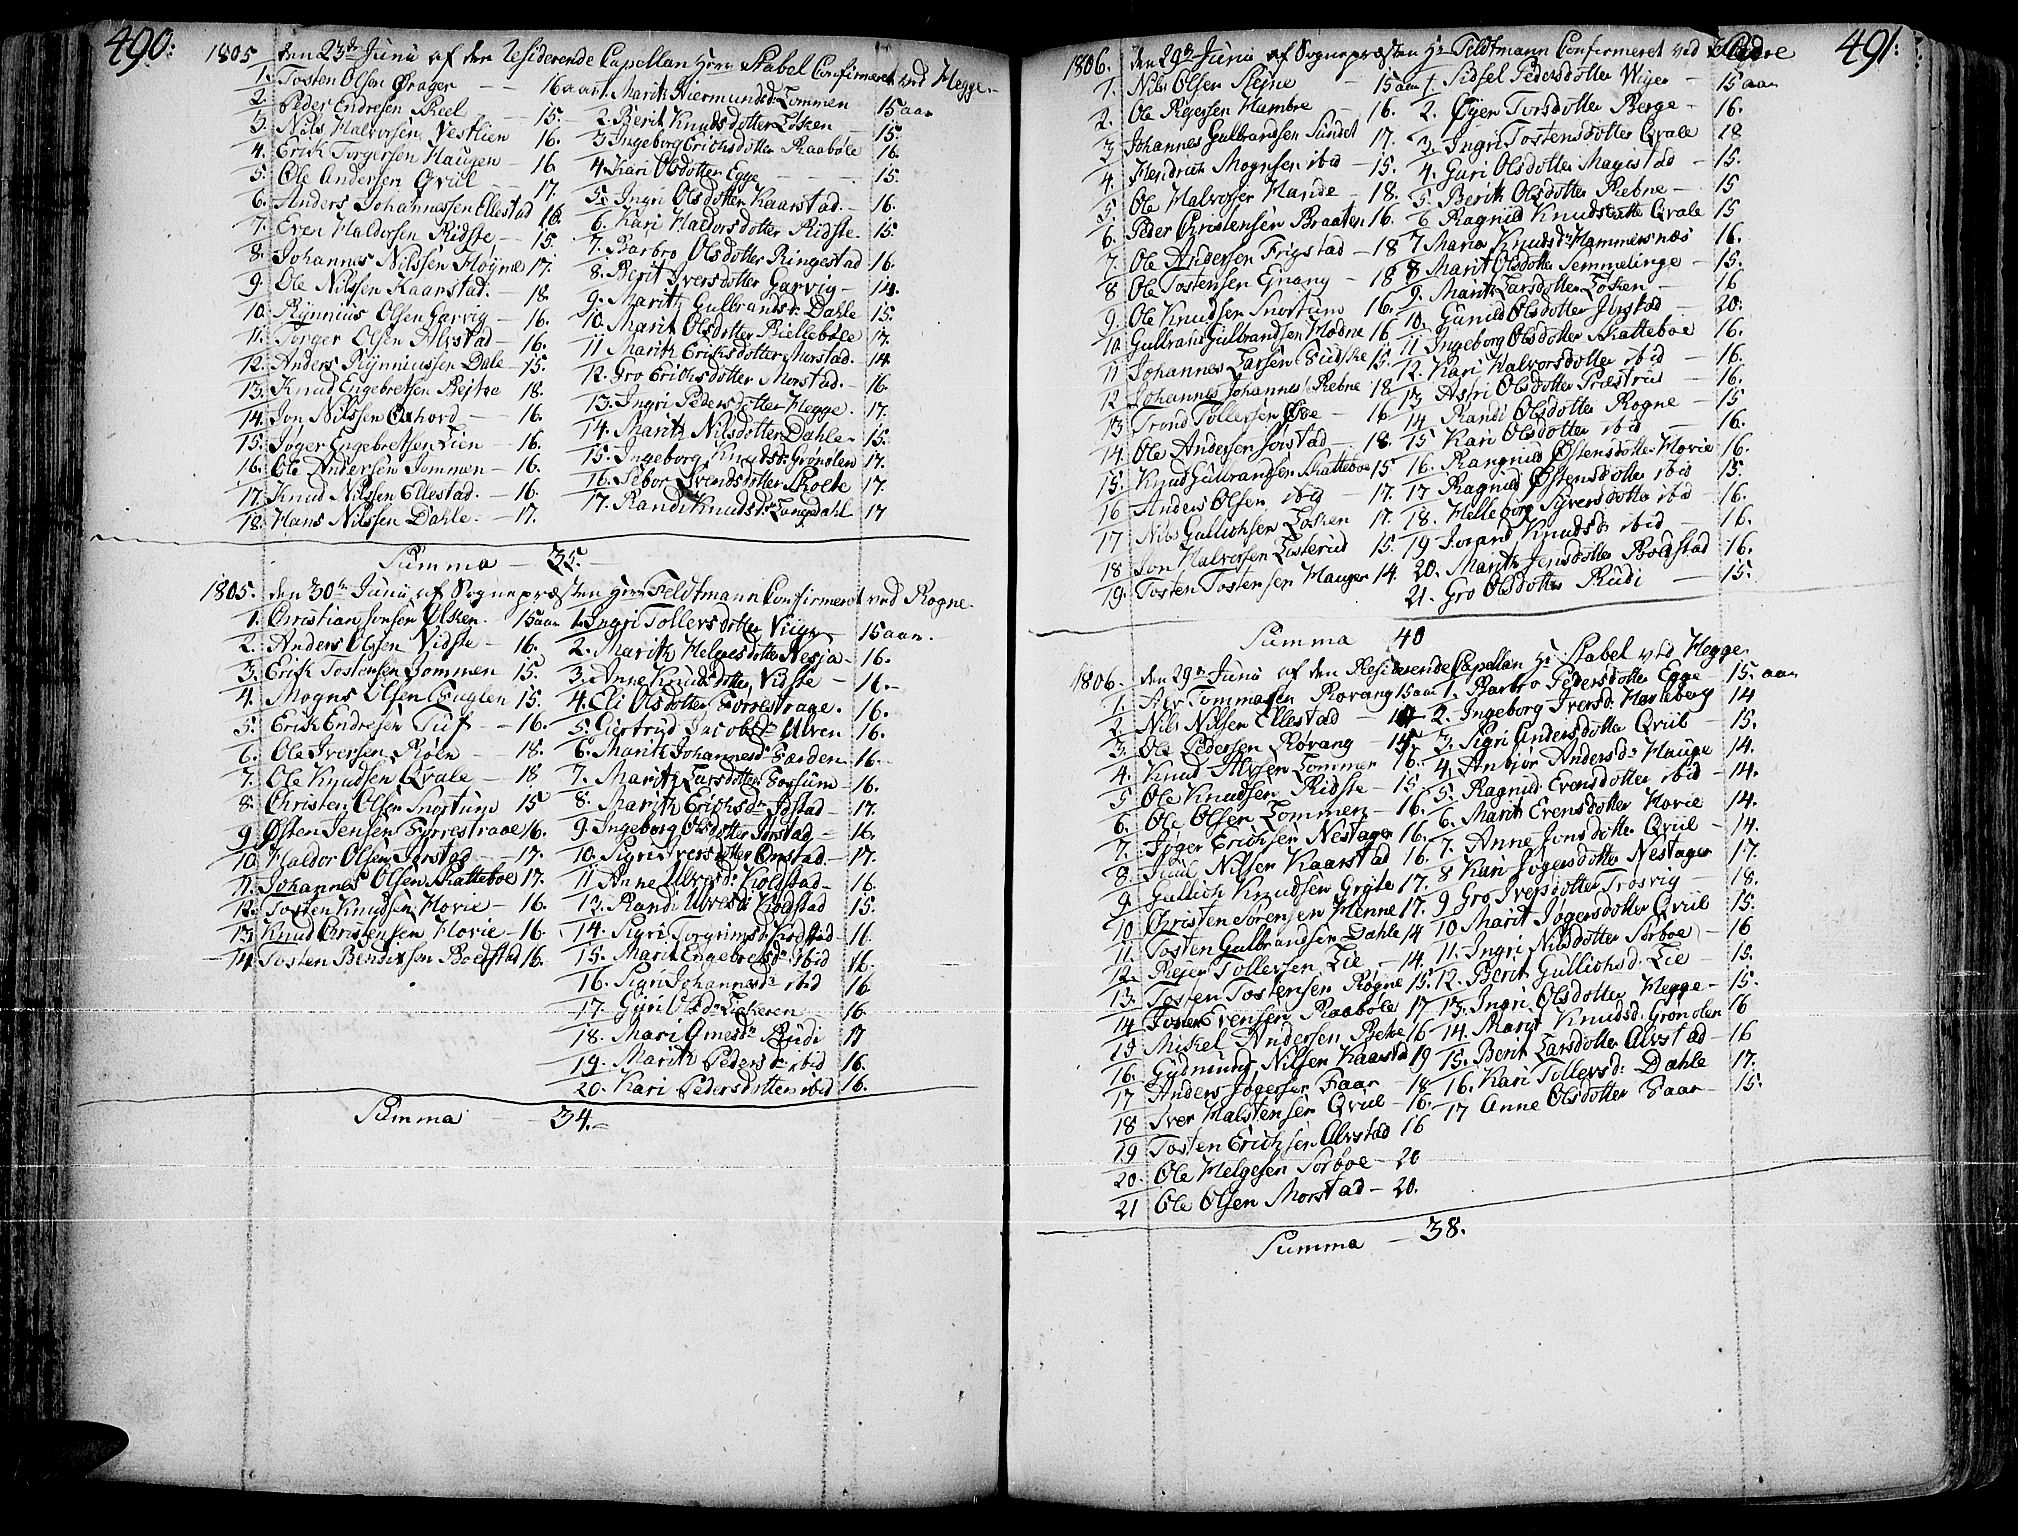 490:
1805 den 23de Junii af den Residerende Capellan Herr Stabel Confirmeret ved Hegge.
1. Tosten Olsen Prager — 16 aar
2. Peder Endresen Skeel — 15.
3. Nils Halvorsen Vestlien 16.
4. Erik Torgersen Haugen — 16
5. Ole Andersen Qviil — 17.
6. Anders Johannessen Ellestad 16.
7. Even Haldorsen Ridste — 15.
8. Johannes Nilssen Høyne 17.
9. Ole Nilssen Kaarstad. — 18
10. Rynnius Olsen Garvig — 16.
11. Torger Olsen Alvstad — 16.
12. Anders Rynniussen Dale — 15.
13. Knud Engebretsen 18.
14. Jon Nilssen Oxhovd — 16.
15. Jøger Engebretsen Lien — 16.
16. Ole Andersen Lommen — 16.
17. Knud Nilssen Ellestad. — 16.
18. Hans Nilssen Dahle. — 17.
1. Marith Hiermundsd. Lommen 15 aar
2. Berit Knudsdotter Løken — 15.
3 Ingeborg Erichsdotter Raabøle 16.
4. Kari Olsdotter Egge — 15.
5. Ingri Olsdotter Kaarstad. — 16.
6. Kari Haldorsdotter Ridste. 15.
7. Barbro Olsdotter Ringestad 16.
8. Berit Iversdotter Garvig — 14.
9. Marith Gulbrandsd. Dahle 15.
10. Marit Olsdotter Biellebøle 17.
11 Marith Eriksdotter Morstad. 14
12. Gro Erichsdotter Morstad. — 16.
13. Ingri Pedersdotter Hegge. 17.
14. Marith Nilsdotter Dahle. 15.
15. Ingeborg Knudsd. Grønolen 17.
16. Sebor Svendsdotter 17.
17. Randi Knudsdr. Langedahl 17
Summa — 35.
1805. den 30te Junii af Sognepræsten Herr Feldtmann Confirmeret ved Rogne.
1. Christian Jonsen Ølken. 15 aar
2. Anders Olsen Vidste — 16.
3. Erik Tostensen Lommen 15.
4. Mogns Olsen Fuglen 15.
5. Erik Endresen Tuf — 16.
6. Ole Iversen Roen — 18.
7. Ole Knudsen Qvale — 18
8. Christen Olsen Snortum 15
9 Østen Jensen Fyrrestraae 16.
10. Haldor Olsen Jørstad — 17.
11. Johannes Olsen Skatteboe 17.
12. Tosten Knudsen Hovie — 16.
13. Knud Christensen Hovie — 16.
14. Tosten Bendixsen Boldstad 16.
1. Ingri Tollevsdotter Viig — 15 aar.
2. Marith Helgesdotter Nesja — 16.
3. Anne Knudsdotter Vidste — 16.
4. Eli Olsdotter 16.
5. Giertrud Jacobsdr. Ulven 16.
6. Marith Johannesd. Garden 16.
7. Marith Larsdotter Forsum — 16.
8. Marith Erichsdr. Jostad — 17.
9. Ingeborg Olsdotter Jørstad — 16.
10. Sigri Iversdotter Onstad — 17.
11 Anne Ulvesd. Kolstad — 16.
12. Randi Ulvesd. Kolstad 15.
14. Sigri Torgrimsd. 16.
15. Marit Engebretsdr. ibid 16.
16. Sigri Johannesdr. ibid 16
17. Gyri Olsdr. Lekeren — 16.
18. Mari Rudi 17
19. Marith Pedersdr. ibid 16.
20. Kari Pedersdotter ibid 16.
Summa — 34.—
491.
1806. den 29de Junii af Sognepræsten Hr. Feldtmann Confirmeret ved Slidre
1. Nils Olsen Steyne — 15 aar
2. Ole Reyersen Hambre — 16.
3. Johannes Gulbrandsen Sundet 17.
4. Hendrich Mognsen ibid — 15.
5. Ole Halvorsen Hande — 18.
6. Peder Christensen Braaten 16.
7. Ole Andersen Frigstad — 18
8 Ole Tostensen Gnang — 18
9. Ole Knudsen Snortum 16.
10. Gulbrand Gulbrandsen Modne 16
11 Johannes Larsen 15.
12 Johannes Johannes. Rebne 18
13 Trond Tollevsen Øvre — 16
14. Ole Andersen Jørstad — 18
15. Knud Gulbrandsen Skatteboe 15
16 Anders Olsen ibid — 17.
17 Nils Gulliksen Løken 17.
18 Jon Halvorsen Løsterud 15.
19. Tosten Tostensen Hauger 14.
1. Sidsel Pedersdotter Wiger — 15 aar
2. Øyer Torsdotter Berge — 16.
3. Ingri Tostensdotter Qvale 18
4. Guri Olsdotter Magistad — 15.
5 Berith Olsdotter Rebne — 15
6 Ragnild Knudsdotter Qvale 15
7 Maria Knudsdr. Hammersnæs 16.
8 Marit Olsdotter Semmelinge — 15.
9. Marith Larsdotter Løken — 16
10. Gunild Olsdotter Jørstad — 20.
11 Ingeborg Olsdotter Skatteboe 16.
12. Kari Halvorsdotter ibid — 16.
13 Astri Olsdotter Præstrud — 16.
14 Randi Olsdotter Rogne — 15
15 Kari Olsdotter ibid — 16.
16. Rangnild Østensdotter Hovie 16.
17 Ragnild Østensdotter ibid 15.
18. Helleborg Syversdotter ibid — 16.
19 Jorand Knudsdr. ibid — 16.
20. Marith Jensdotter Boldstad 16.
21. Gro Olsdotter Rudi — 15.
Summa 40
1806. den 29de Junii af den Residerende Capellan Hr. Stabel ved Hegge.
1. Tommasen Rovang 15 aar
2. Nils Nilsen Ellestad
3. Ole Pedersen Røvang 15.
4. Knud Alvsen Lommen 16.
5 Ole Knudsen Ridste — 15
6. Ole Olsen Lommen — 16.
7. Jøger Erichsen Nestager 16.
8. Juul Nilsen Kaarstad 16.
9 Gullich Knudsen Grøte 17.
10 Christen Sørensen Henne 17.
11. Tosten Gulbrandsen Dahle 14
12. Reyer Tollevsen Lie — 14.
13. Tosten Tostensen Rogne 15.
14 Evensen Raabøle 17
15 Mikel Andersen Beke 16
16. Gudmund Nilsen Kaarstad 19
17 Anders Jøgersen Faar — 18
18 Iver Halstensen Qviil — 16.
19 Tosten Erichsen Alvstad 16
20. Ole Helgesen Sørboe — 20
21 Ole Olsen Morstad — 20.
1. Barbro Pedersdotter Egge — 15. aar
2. Ingeborg Iversd. Harleberg 14
3. Sigri Andersdotter Qviil — 15.
4. Anbiør Andersdr. Hauge 14.
5. Ragnild Evensdotter ibid — 14.
6. Marit Evensdotter Hovie 14.
7. Anne Jonsdotter Qviil — 14.
8 Kari Jøgersdotter Nestager 17.
9 Gro Iversdotter Trosvig — 18.
10 Marit Jøgersdotter Qviil 15.
11. Ingri Nilsdotter Sørboe — 16
12. Berit Gulliohsd. Lie — 15.
13. Ingri Olsdotter Hegge — 15.
14. Marit Knudsd. Grønolen 16
15. Berit Larsdotter Alvstad — 16
16. Kari Tollevsd. Dahle 17.
17 Anne Olsdotter Faar — 15.
Summa — 38.